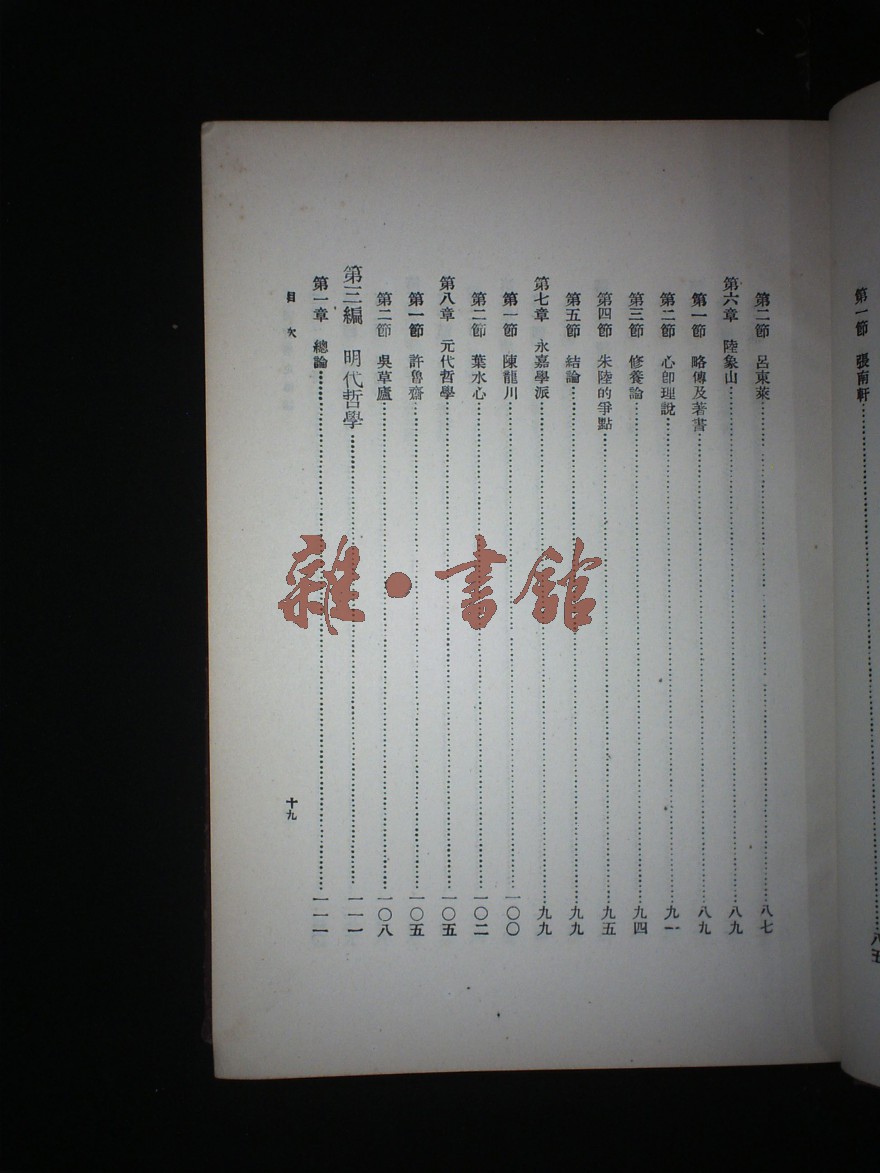 第一節　張南軒……八五
第二節　呂東萊……八七
第六章　陸象山……八九
第一節　略傳及著書……八九
第二節　心卽理說……九一
第三節　修養論……九四
第四節　朱陸的爭點……九五
第五節　結論……九九
第七章　永嘉學派……九九
第一節　陳龍川……一〇〇
第二節　葉水心……一〇二
第八章　元代哲學……一〇五
第一節　許魯齋……一〇五
第二節　吳草廬……一〇八
第三編　明代哲學……一一一
第一章　總論……一一一
目次
十九
雜·書館